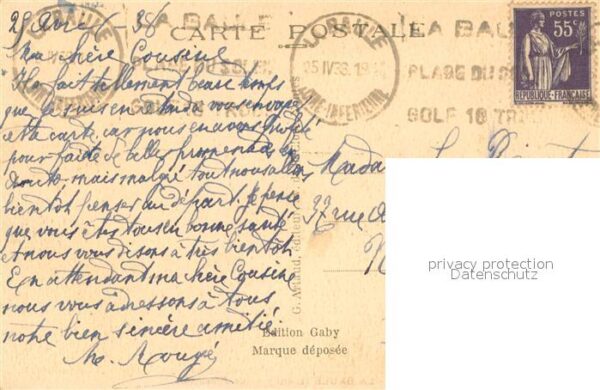 25 Avril - 38
Ma chère Cousine
Il fait tellement beau temps
que je suis en retard de vous envoyer
cette carte, car nous en avons profité
pour faire de belles promenades en
mais malgré tout nous allons
bientôt penser au départ. Je pense
que vous êtes tous en bonne santé
et nous vous disons à très bientôt.
En attendant ma chère Cousine
nous vous adressons à tous
notre bien sincère amitié.
M. Rougé
CARTE POSTALE
LA BAULE
LA BAULE
LOIRE-INFERIEURE
LA BAULE
PLAGE DU
GOLF 18 TR
POSTES
55c
REPUBLIQUE-FRANÇAISE
Mada
33 rue
G. Artaud, éditeur
Edition Gaby
Marque déposée
privacy protection
Datenschutz